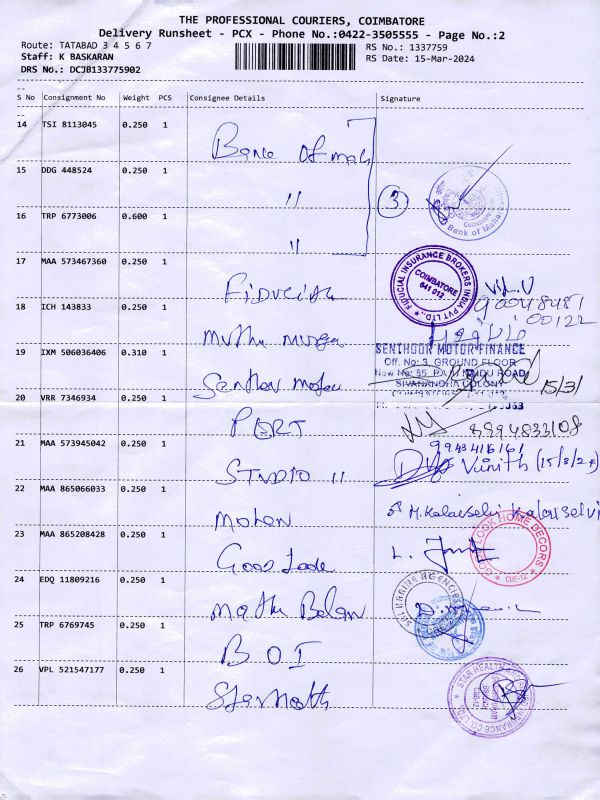 THE PROFESSIONAL COURIERS, COIMBATORE
Delivery Runsheet - PCX - Phone No.:0422-3505555 - Page No.:2
Route: TATABAD 3 4 5 6 7
RS No.: 1337759
Staff: K BASKARAN
RS Date: 15-Mar-2024
DRS No.: DCJB133775902
S No Consignment No Weight PCS Consignee Details Signature
14 TSI 8113045 0.250 1
Bank of mah
15 DDG 448524 0.250 1
"
3
Bank of Mahar
16 TRP 6773006 0.600 1
"
17 MAA 573467360 0.250 1
Fiducial
FIDUCIAL INSURANCE BROKERS INDIA PVT LTD.,
COIMBATORE
641 012
18 ICH 143833 0.250 1
muthu muruga
90048481
00122
19 IXM 506036406 0.310 1
Senthor motor
SENTHOOR MOTOR FINANCE
Off. No: 3, GROUND FLOOR
SIVANANDHA COLONY
15/3/
20 VRR 7346934 0.250 1
PORT
8894833108
21 MAA 573945042 0.250 1
STUDIO 11
9943416161
Vinith (15/3/24)
22 MAA 865066033 0.250 1
mohan
M.Kalaiselvi Kalaiselvi
23 MAA 865208428 0.250 1
Good Look
LOOK HOME DECORS
CBE-12
24 EDQ 11809216 0.250 1
mathu Balan
25 TRP 6769745 0.250 1
B O I
26 VPL 521547177 0.250 1
Star Health
STAR HEALTH
INSURANCE CO. LTD.